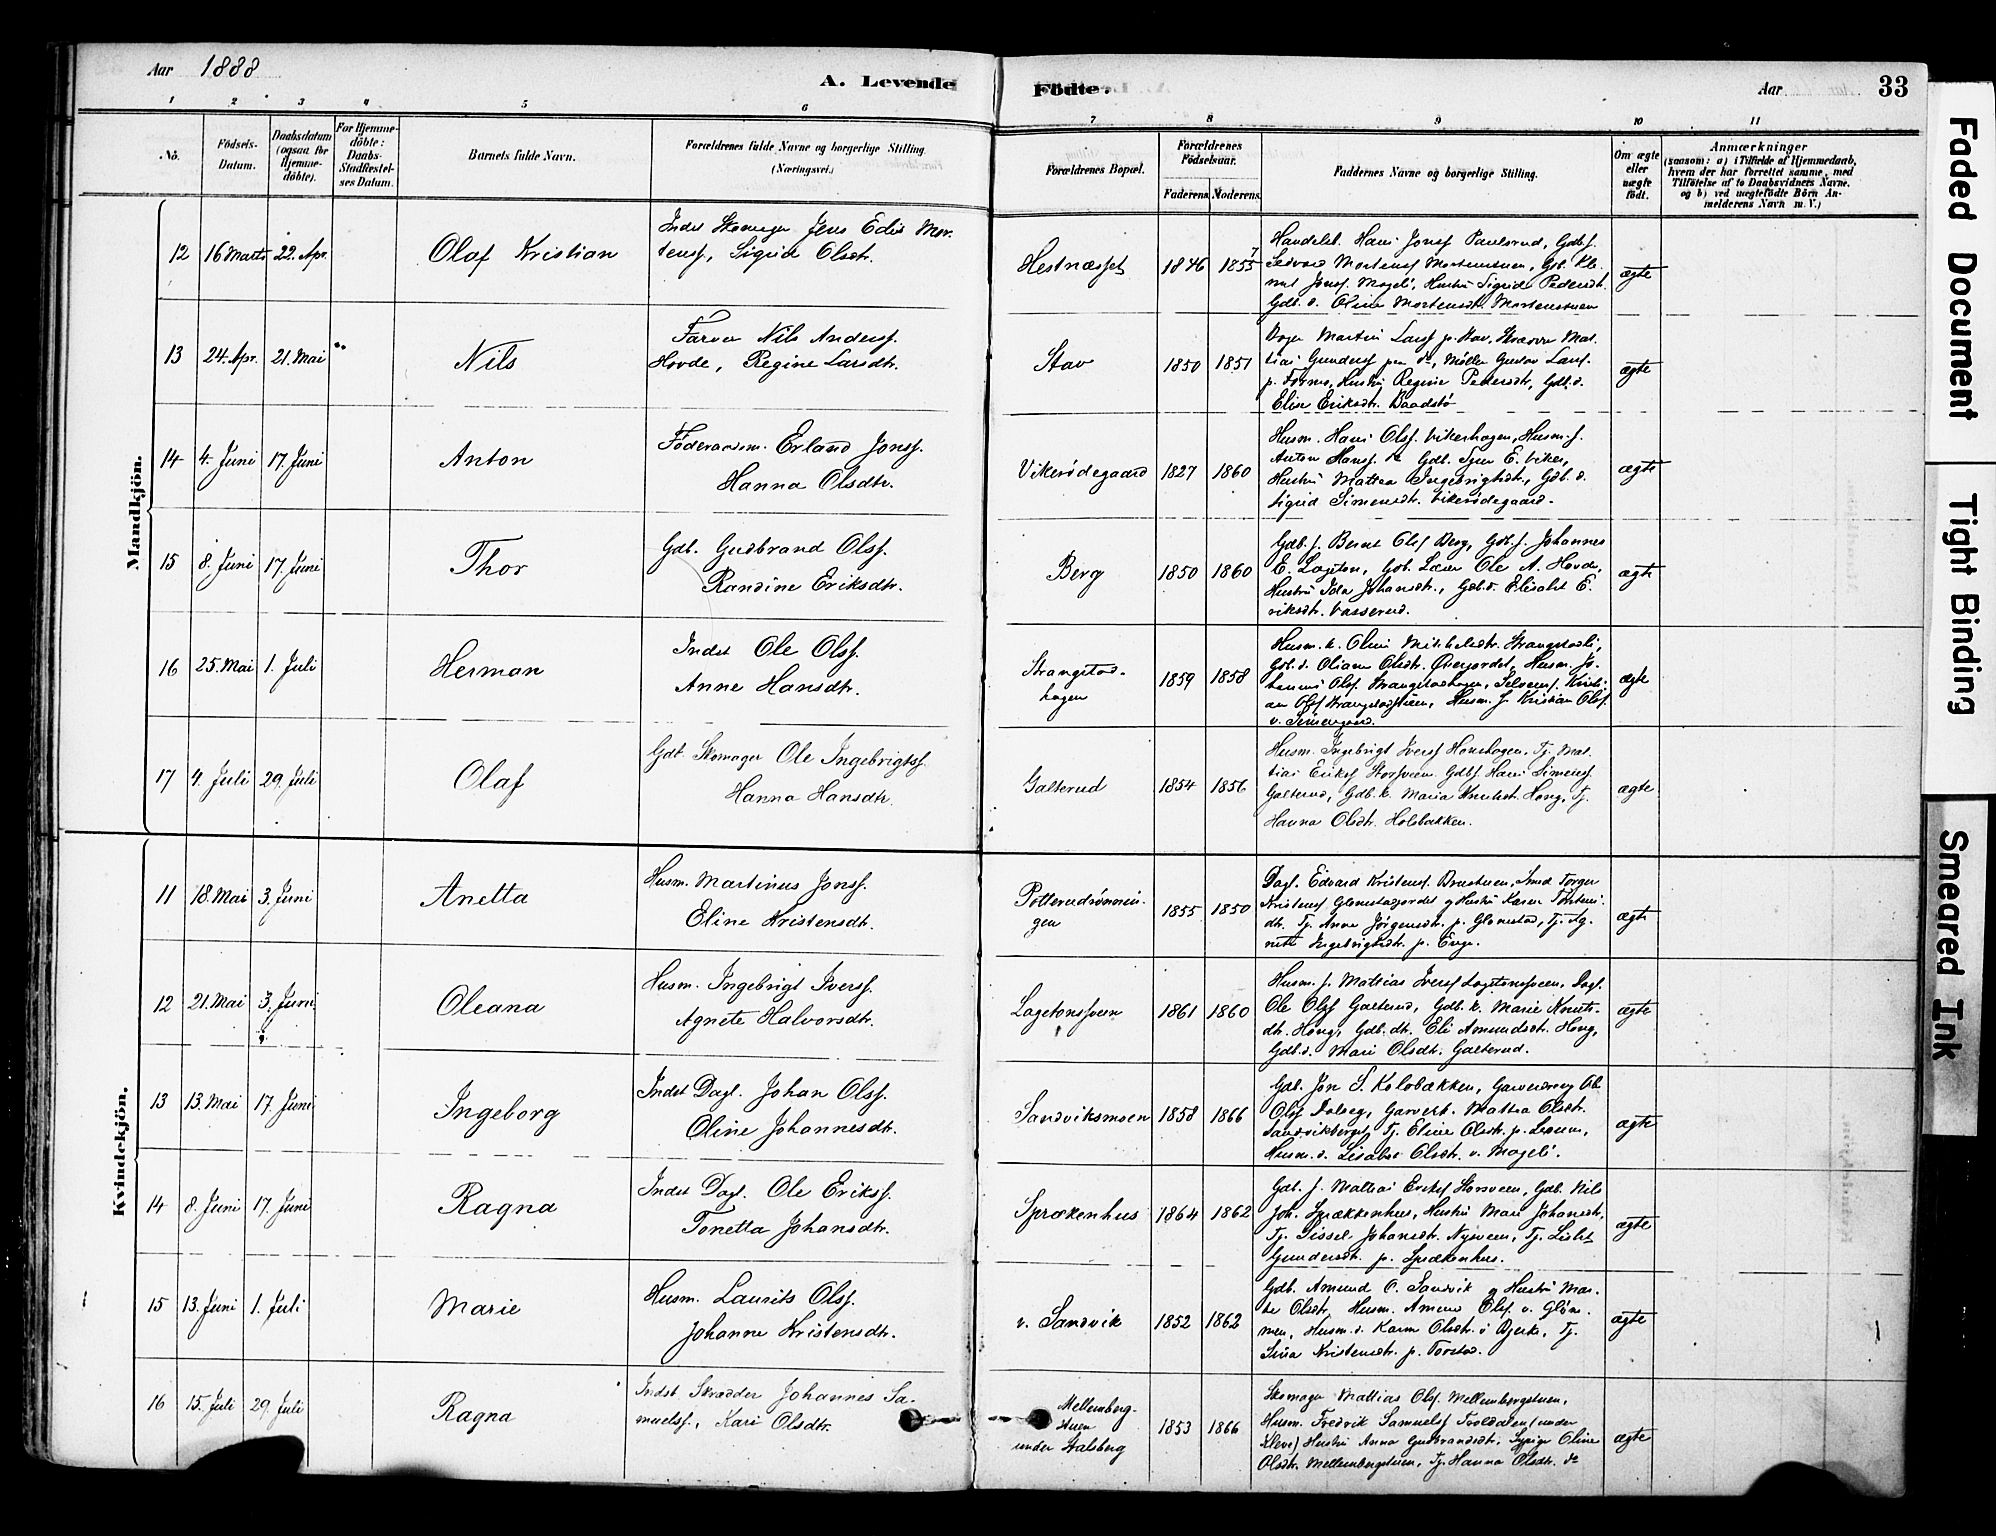 Aar 1888
A. Levende
Fødte.
Aar
33
1 2 3 4 5 6
7 8 9 10 11
No.
Fødsels-Datum.
Daabsdatum (ogsaa for Hjemmedøbte).
For Hjemmedøbte: Daabs-Stadfestelses Datum.
Barnets fulde Navn.
Forældrenes fulde Navne og borgerlige Stilling. (Næringsvei.)
Forældrenes Bopæl.
Forældrenes Fødselsaar.
Faderens. Moderens.
Faddernes Navne og borgerlige Stilling.
Om ægte eller uægte født.
Anmærkninger
(saasom: a) i Tilfælde af Hjemmedaab,
hvem der har forrettet samme, med
Tilføielse af to Daabsvidners Navne,
og b) ved uægtefødte Børn An-
melderens Navn m. V.)
Mandkjön.
12 16 Marts 22. Apr. Olaf Kristian
Inds Skomager Jens Edv. Mor-
tensf, Sigrid Olsdtr.
Hestnæsset 1846 1855
Handelsb. Hans Jonsf Paulsrud, Gdb. f.
Mortensf Mortenstuen, Gdb. Kle-
met Jonsf. Mageli, Hustru Sigrid Pedersdtr.
Gdb. d. Oline Mortensdtr. Mortenstuen
ægte
13 24. Apr. 21. Mai Nils
Farver Nils Andersf.
Hovde, Regine Larsdtr.
Stav 1850 1851
Martin Larsf p. Stav, Mat-
tias Gundersf paa do, Møller Gustav Larsf.
p. Formo, Hustru Regine Pedersdtr, Gdb. d.
Elise Eriksdtr. Baadstø
ægte
14 4. Juni 17. Juni Anton
Føderaadsm. Erland Jonsf.
Hanna Olsdtr.
Vikerødegaard 1827 1860
Husm. Hans Olsf. Vikerhagen, Husm. f.
Anton Hansf. do Gdb. E. Viker,
Hustru Mathea Ingebrigtsdtr., Gdb. d.
Sigrid Simensdtr. Vikerødegaard.
ægte
15 8. Juni 17. Juni Thor
Gdb. Gudbrand Olsf.
Randine Eriksdtr.
Berg 1850 1860
Gdb. f. Bernt Olsf Berg, Gdb. f. Johannes
E. Lageton, Gdb. Ole A. Hovde,
Hustru Ida Johansdtr., Gdb. d. Elisabet E-
riksdtr. Vasserud.
ægte
16 25. Mai 1. Juli Herman
Inds Ole Olsf.
Anne Hansdtr.
Strangstad-
hagen
1859 1858
Husm. k. Oline Mikkelsdtr. Strangstadli,
Gdb. d. Oliane Olsdtr. Øverjordet, Husm. Jo-
hannes Olsf. Strangstadhagen, Selveierf. Kristi-
an Olsf Strangstadstuen, Husm. f. Kristian Olsf.
v. Simengaard.
ægte
17 4. Juli 29. Juli Olaf
Gdb. Skomager Ole Ingebrigtsf.
Hanna Hansdtr.
Galterud 1854 1856
Husm. Ingebrigt Iversf Honehagen, Tj. Mat-
tias Eriksf Storsveen Gdbf. Hans Simensf.
Galterud, Gdb. k. Maria Knutsdtr. Hong, Tj.
Hanna Olsdtr. Holsbakken.
ægte
Kvindekjön.
11 18. Mai 3. Juni Anetta
Husm. Martinus Jonsf.
Eline Kristensdtr.
Potterudrønnin-
gen
1855 1850
Dagl. Edvard Kristensf. Brustuen, Smed Torger
Kristensf Glomstadjordet og Hustru Karen Torsteins-
dtr. Tj. Anne Jørgensdtr. p. Glomstad, Tj. Ag-
nette Ingebrigtsdtr. p. Enge.
ægte
12 21. Mai 3. Juni Oleana
Husm. Ingebrigt Iversf.
Agnete Halvorsdtr.
Lagetonsveen 1861 1860
Husm. f. Mathias Iversf Lagetonsveen, Dagl.
Ole Olsf Galterud, Gdb. k. Marie Knuts-
dtr. Hong, Gdb. dtr. Eli Amundsdtr. Hong,
Gdb. d. Mari Olsdtr. Galterud.
ægte
13 13. Mai 17. Juni Ingeborg
Inds Dagl. Johan Olsf.
Oline Johannesdtr.
Sandviksmoen 1858 1866
Gdb. Jon S. Kolobækken, Garversvend Ole
Olsf Dalseg, Garverk. Mathea Olsdtr.
Sandvikberget, Tj. Eline Olsdtr. p.
Husm. d. Lisabet Olsdtr. v. Mageli.
ægte
14 8. Juni 17. Juni Ragna
Inds Dagl. Ole Eriksf.
Tonetta Johansdtr.
Sprækenhus 1864 1862
Gdb. f. Mathias Eriksf Storsveen, Gdb. Nils
Joh. Sprækkenhus, Hustru Mari Johansdtr.,
Tj. Sissel Johansdtr. Nysveen, Tj. Lisbet
Gundersdtr. p. Sprækenhus.
ægte
15 13. Juni 1. Juli Marie
Husm. Laurits Olsf.
Johanne Kristensdtr.
v. Sandvik 1852 1862
Gdb. Amund O. Sandvik og Hustru Mar-
te Olsdtr, Husm. Amund Olsf. v. Gløm-
men, Husm. d. Karen Olsdtr. i Bjerke, Tj.
Sina Kristensdtr. p. Torstad.
ægte
16 15. Juli 29. Juli Ragna
Inds Skrædder Johannes Sa-
muelsf., Kari Olsdtr.
Mellemberg-
stuen
under Stalsberg
1853 1866
Skomager Mattias Olsf. Mellembergstuen,
Husm. Fredrik Samuelsf Troldalen (under
Kleve) Hustru Anna Gudbrandsdtr, Sypige Oline
Olsdtr. Mellembergstuen, Tj. Hanna Olsdtr. do
ægte
Faded Document
Tight Binding
Smeared Ink